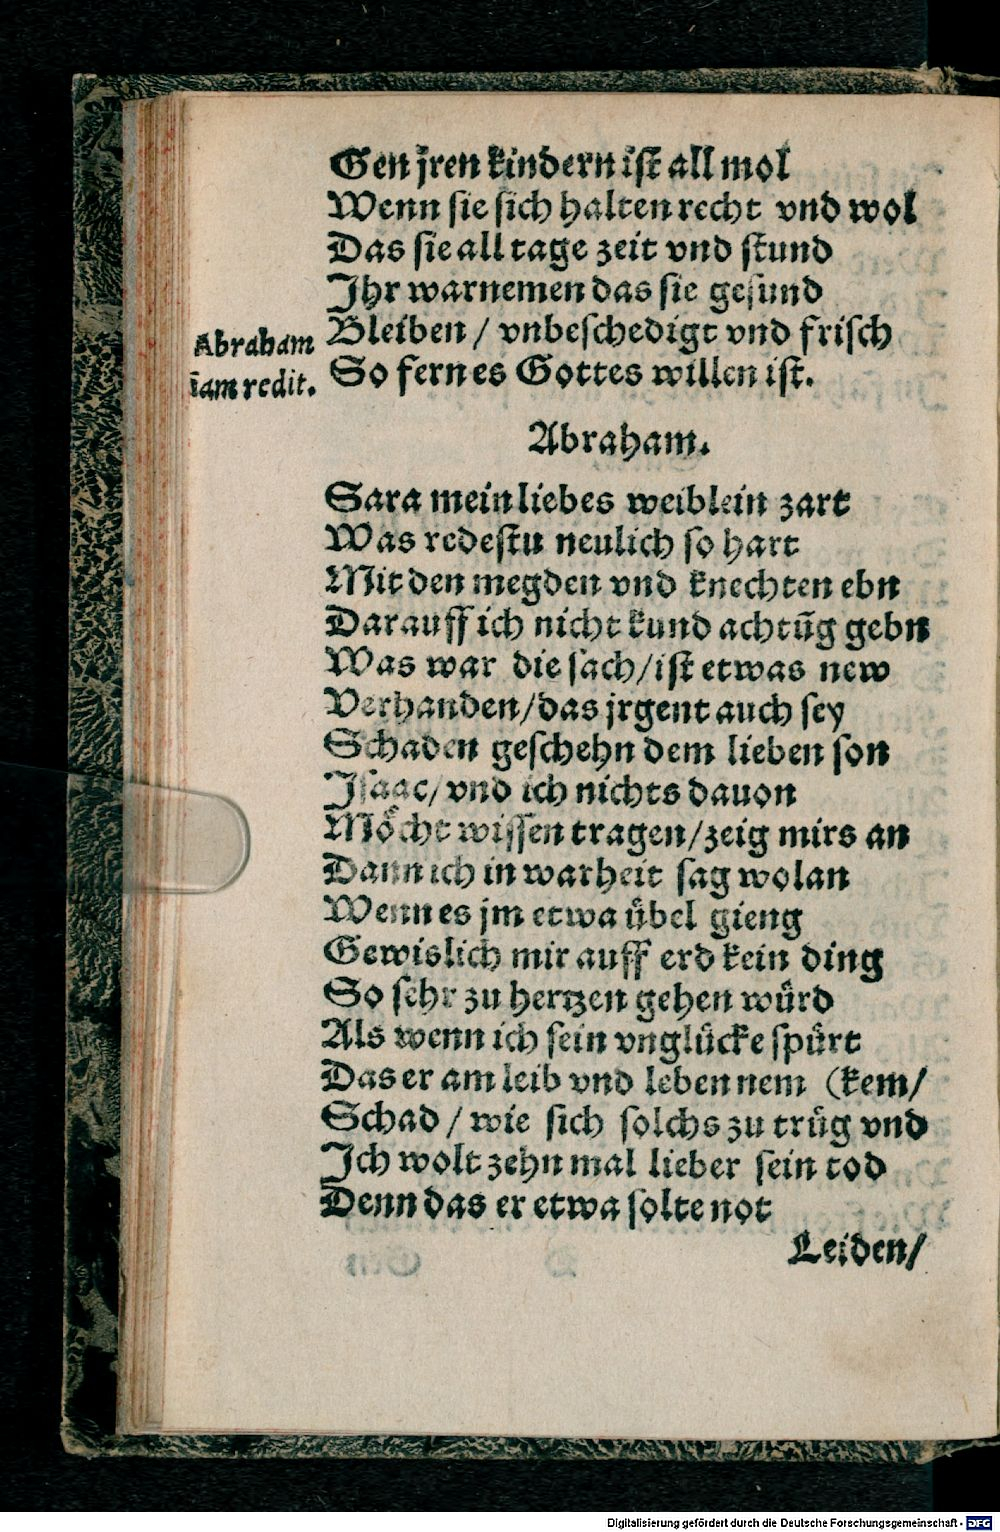 Gen jren kindern ist all mol
Wenn sie sich halten recht vnd wol
Das sie all tage zeit vnd stund
Ihr warnemen das sie gesund
Bleiben / vnbeschedigt vnd frisch
So fern es Gottes willen ist.
Abraham
iam redit.
Abraham.
Sara mein liebes weiblein zart
Was redestu neulich so hart
Mit den megden vnd knechten ebn
Darauff ich nicht kund achtūg gebn
Was war die sach / ist etwas new
Verhanden / das jrgent auch sey
Schaden geschehn dem lieben son
Isaac / vnd ich nichts dauon
Möcht wissen tragen / zeig mirs an
Dann ich in warheit sag wolan
Wenn es jm etwa übel gieng
Gewislich mir auff erd kein ding
So sehr zu hertzen gehen würd
Als wenn ich sein vnglücke spürt
Das er am leib vnd leben nem (kem /
Schad / wie sich solchs zu trüg vnd
Ich wolt zehn mal lieber sein tod
Denn das er etwa solte not
Leiden /
Digitalisierung gefördert durch die Deutsche Forschungsgemeinschaft - DFG